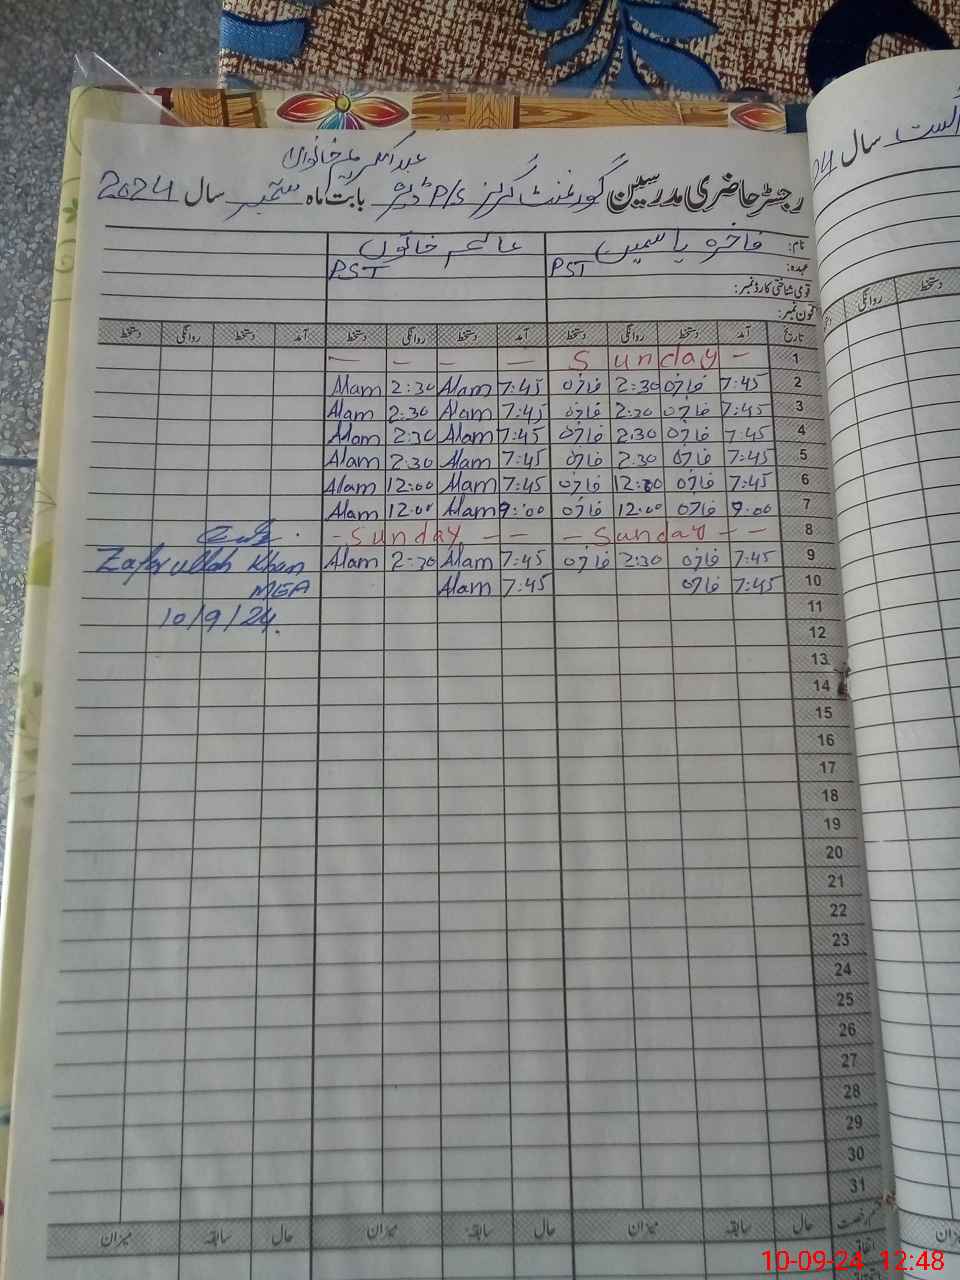 رجسٹر حاضری مدرسین گورنمنٹ گرلز P/S بابت ماہ ستمبر سال 2024
نام: فاخرہ یاسمین عالم خاتون
عہدہ: PST PST
قومی شناختی کارڈ نمبر:
فون نمبر:
تاریخ آمد دستخط روانگی دستخط آمد دستخط روانگی دستخط آمد دستخط روانگی دستخط
1 Sunday
2 7:45 فاخرہ 2:30 فاخرہ 7:45 Alam 2:30 Alam
3 7:45 فاخرہ 2:30 فاخرہ 7:45 Alam 2:30 Alam
4 7:45 فاخرہ 2:30 فاخرہ 7:45 Alam 2:30 Alam
5 7:45 فاخرہ 2:30 فاخرہ 7:45 Alam 2:30 Alam
6 7:45 فاخرہ 12:00 فاخرہ 7:45 Alam 12:00 Alam
7 9:00 فاخرہ 12:00 فاخرہ 9:00 Alam 12:00 Alam
8 - Sunday - - - Sunday - -
9 7:45 فاخرہ 2:30 فاخرہ 7:45 Alam 2:30 Alam
10 7:45 فاخرہ 7:45 Alam
Zafar ullah Khan
MEA
10/9/24
11
12
13
14
15
16
17
18
19
20
21
22
23
24
25
26
27
28
29
30
31
قسم رخصت حال سابقہ میزان حال سابقہ میزان حال سابقہ میزان
اگست سال
روانگی دستخط
10-09-24 12:48